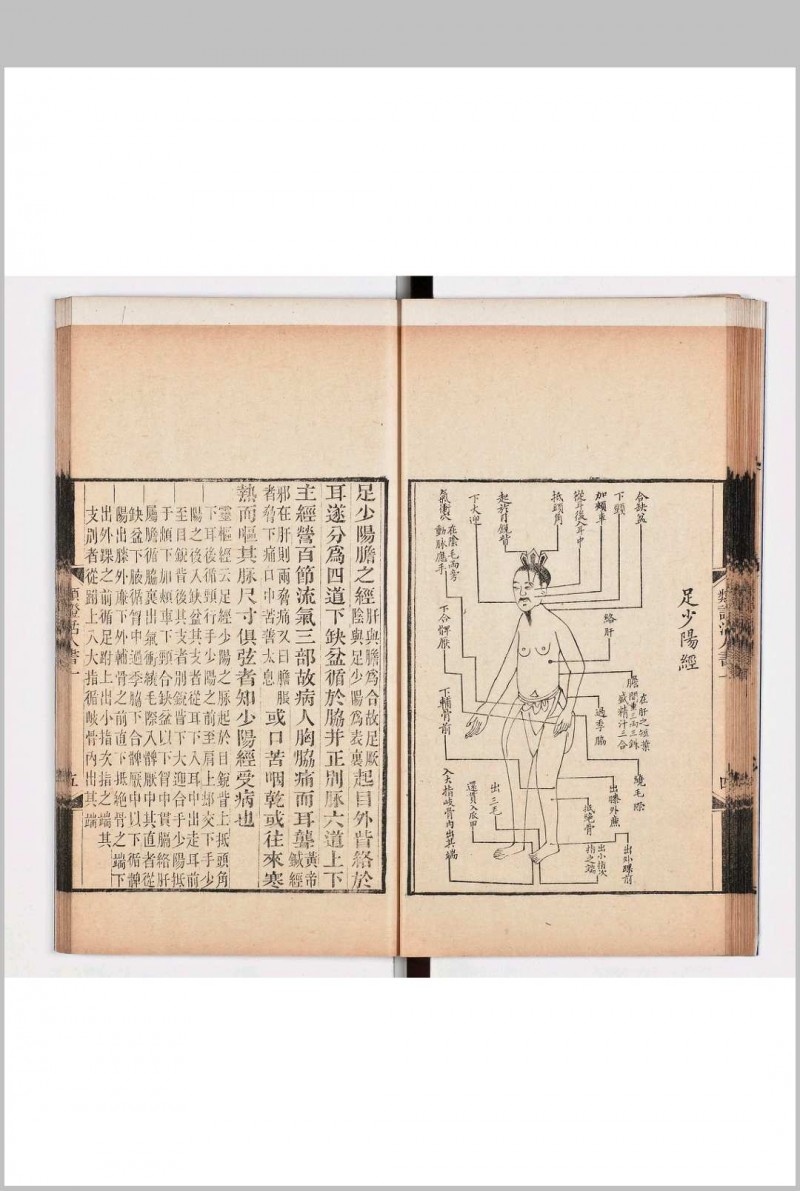 足少陽經
合缺盆
下頸
加頰車
從耳後入耳中
抵頭角
起於目銳眥
下大迎
氣衝穴
在陰毛兩旁
動脉應手
絡肝
膽
在肝之短葉
間重三兩三銖
盛精汁三合
過季脇
繞毛際
下合髀厭
下輔骨前
出膝外亷
抵絶骨
出外踝前
出小指次
指之端
出三毛
還貫入爪甲
入大指岐骨內出其端
四
足少陽膽之經肝與膽爲合故足厥陰與足少陽爲表裏起目外眥絡於
耳遂分爲四道下缺盆循於脇并正別脉六道上下
主經營百節流氣三部故病人胸脇痛而耳聾黃帝鍼經
邪在肝則兩脅痛又曰膽脹者脅下痛口中苦善太息或口苦咽乾或往來寒
熱而嘔其脉尺寸俱弦者知少陽經受病也
靈樞經云足少陽之脉起於目銳眥上抵頭角
下耳後循頸行手少陽之前至肩上却交下手少
陽之後入缺盆其支者從耳後入耳中出走耳前
至目銳眥後其支者別銳眥下大迎合手少陽抵
于䪼下加頰車下頸合缺盆以下胷中貫膈絡肝
屬膽循脇裏出氣衝繞毛際入髀厭中其直者從
缺盆下腋循胷中過季脇下合髀厭中以下循髀
陽出膝外亷下外輔骨之前直下抵絕骨之端下
出外踝之前循足跗上出小指次指之端其
支別者從跗上入大指循岐骨內出其端
類證活人書一
五